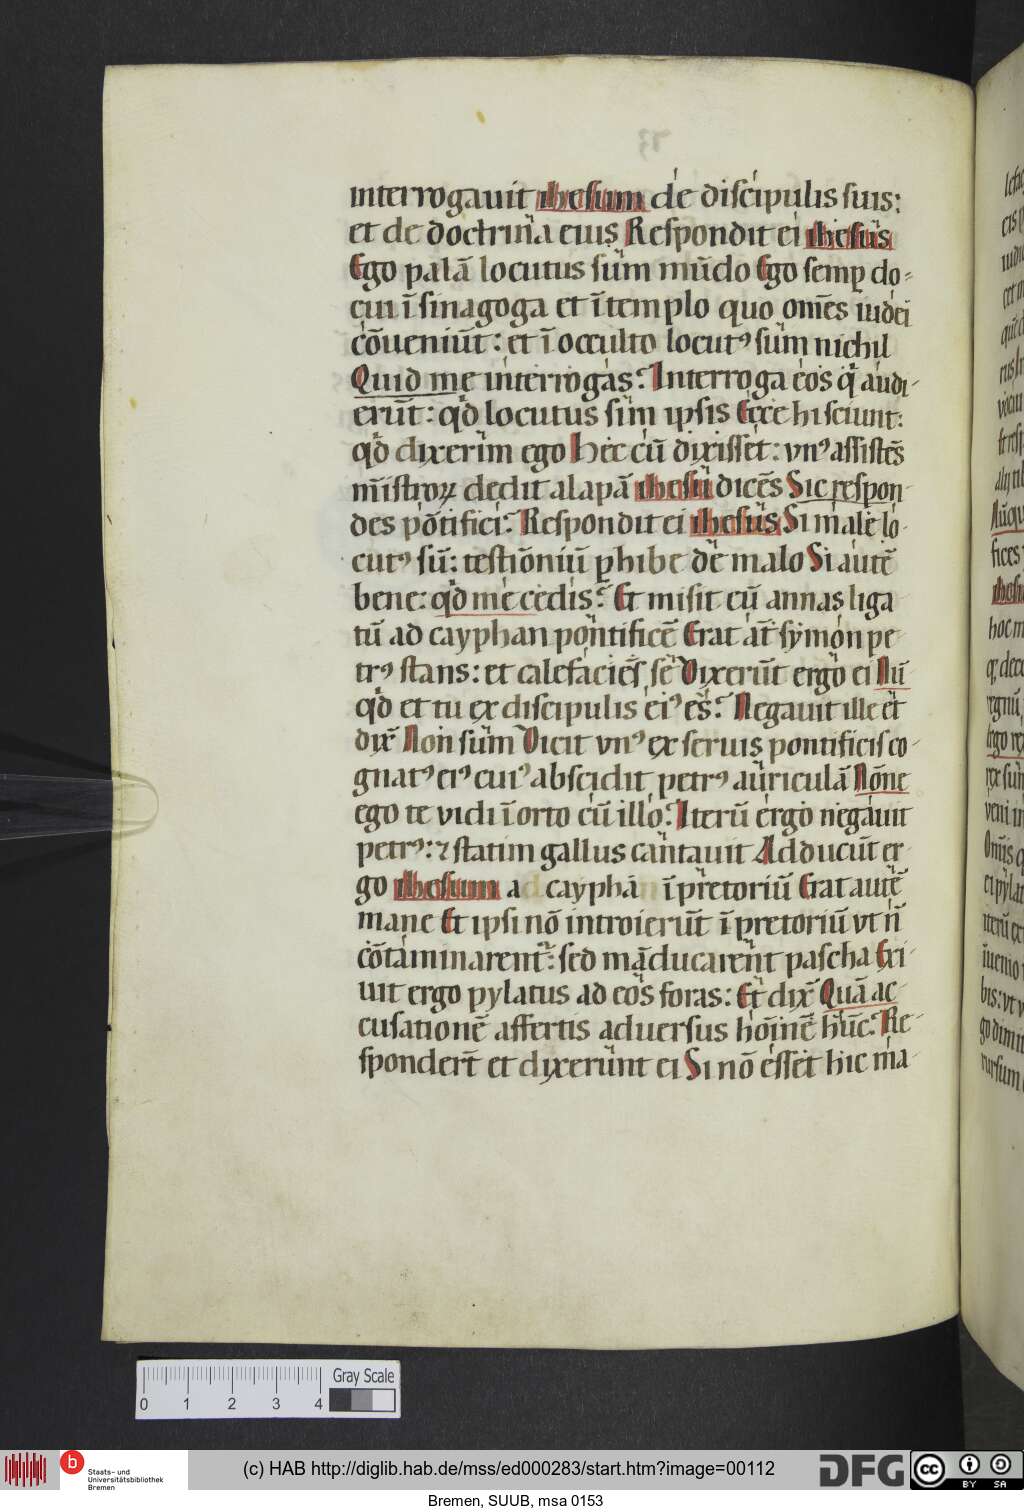 interrogauit ihesum de discipulis suis:
et de doctrina eius Respondit ei ihesus
Ego palā locutus sum mūdo Ego semp do-
cui ī sinagoga et ī templo quo omēs iudei
cōueniūt: et ī occulto locutꝰ sum nichil
Quid me interrogas? Interroga eos q̄ audi-
erūt: qd̄ locutus sum ipsis Ecce hi sciunt:
qd̄ dixerim ego Hec cū dixisset: vnꝰ assistēs
mīstroꝝ dedit alapā ihesu dicēs Sic respon-
des pōtifici? Respondit ei ihesus Si male lo-
cutꝰ sū: testiōniū ꝑhibe de malo Si autē
bene: qd̄ me cedis? Et misit eū annas liga
tū ad cayphan pontificē Erat at̄ symon pe-
trꝰ stans: et calefaciēs se Dixerūt ergo ei Nū
qd̄ et tu ex discipulis eiꝰ es? Negauit ille et
dix̄ Non sum Dicit vnꝰ ex seruis pontificis co-
gnatꝰ eiꝰ cuiꝰ abscidit petrꝰ auriculā Nōne
ego te vidi ī orto cū illo? Iterū ergo negauit
petrꝰ: ⁊ statim gallus cantauit Adducūt er-
go ihesum ad caypha ī pretoriū Erat autē
mane Et ipsi nō introierūt ī pretoriū vt n̄
cōtaminarent: sed māducarent pascha Exi-
uit ergo pylatus ad eos foras: Et dix̄ Quā ac-
cusationē affertis aduersus hoīnē hūc? Re-
spondert̄ et dixerunt ei Si nō esset hic ma-
Gray Scale
0 1 2 3 4
b
Staats- und
Universitätsbibliothek
Bremen
(c) HAB http://diglib.hab.de/mss/ed000283/start.htm?image=00112
DFG
cc BY SA
Bremen, SUUB, msa 0153